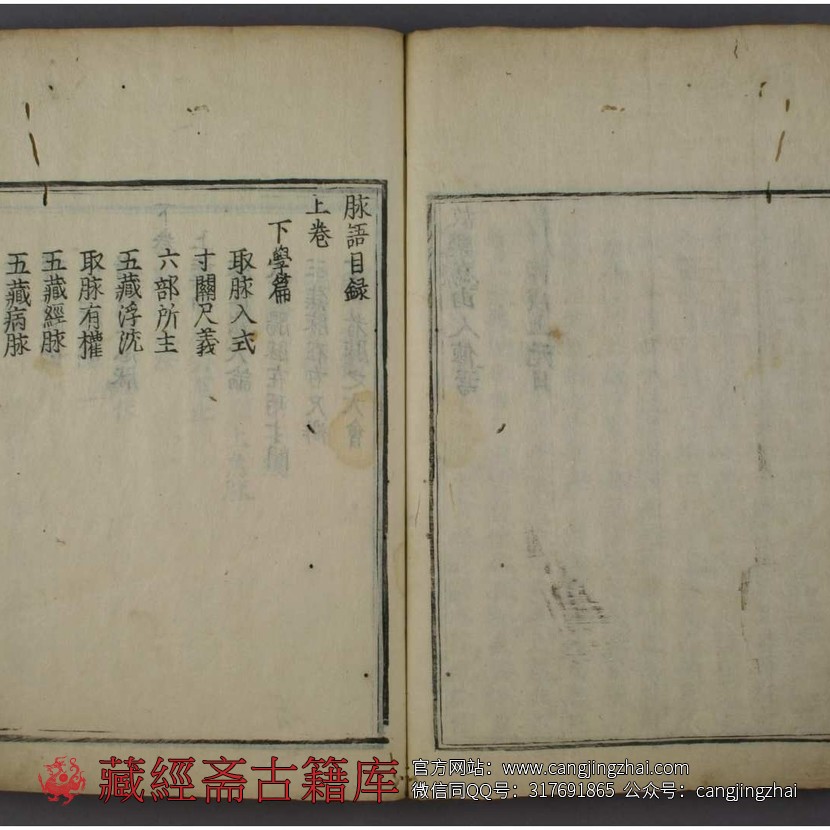 脉語目録
上卷
下學篇
取脉入式
寸關尺義
六部所主
五藏浮沉
取脉有權
五藏經脉
五藏病脉
藏經斋古籍库
官方网站：www.cangjingzhai.com
微信同QQ号：317691865 公众号：cangjingzhai